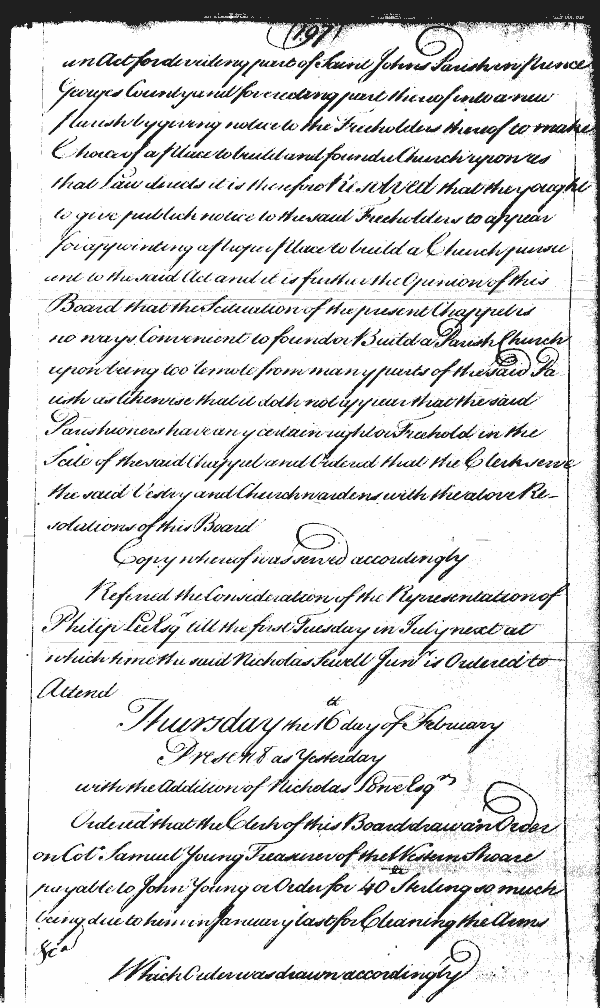 (197)
an Act for deviding part of Saint Johns Parish in Prince
Georges County and for creating part thereof into a new
Parish by giving notice to the Freeholders thereof to make
Choice of a Place to build and found a Church upon as
that Law directs it is therefore Resolved that they ought
to give publick notice to the said Freeholders to appear
for appointing a proper Place to build a Church pursu
ant to the said Act and it is further the Opinion of this
Board that the Scituation of the present Chappel is
no ways Convenient to found or Build a Parish Church
upon being too remote from many parts of the said Pa
rish as likewise that it doth not appear that the said
Parishioners have any certain right or Freehold in the
Scite of the said Chappel and Ordered that the Clerk serve
the said Vestry and Churchwardens with the above Re-
solutions of this Board
Copy whereof was served accordingly
Referred the Consideration of the Representation of
Philip Lee Esqr till the first Tuesday in July next at
which time the said Nicholas Sewell Junr is Ordered to
Attend
Thursday the 16th day of February
Present as Yesterday
with the Addition of Nicholas Lowe Esqr
Ordered that the Clerk of this Board draw an Order
on Col. Samuel Young Treasurer of the Western Shoare
payable to John Young or Order for 40 Sterling so much
being due to him in January last for Cleaning the Arms
&ca
Which Order was drawn accordingly